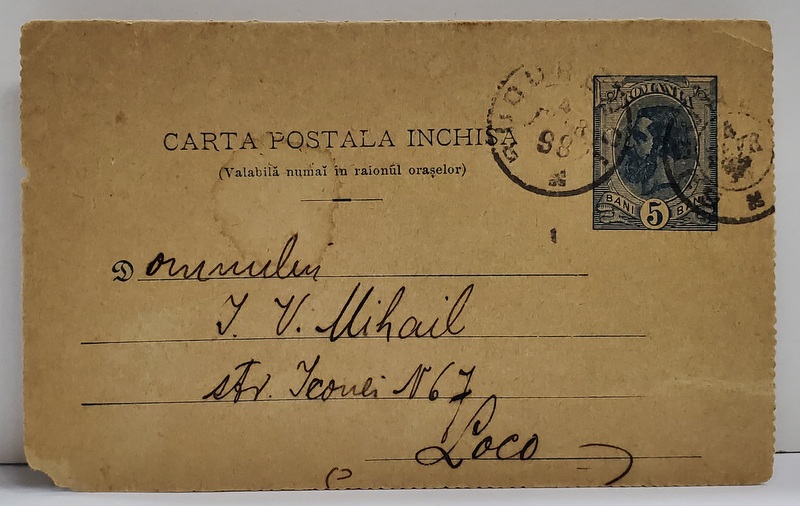 CARTA POSTALA INCHISA
(Valabilă numaĭ în raionŭl orașelor)
ROMANIA
BANI 5 BANI
98
Domnului
I. V. Mihail
str. Iconei N 67
Loco